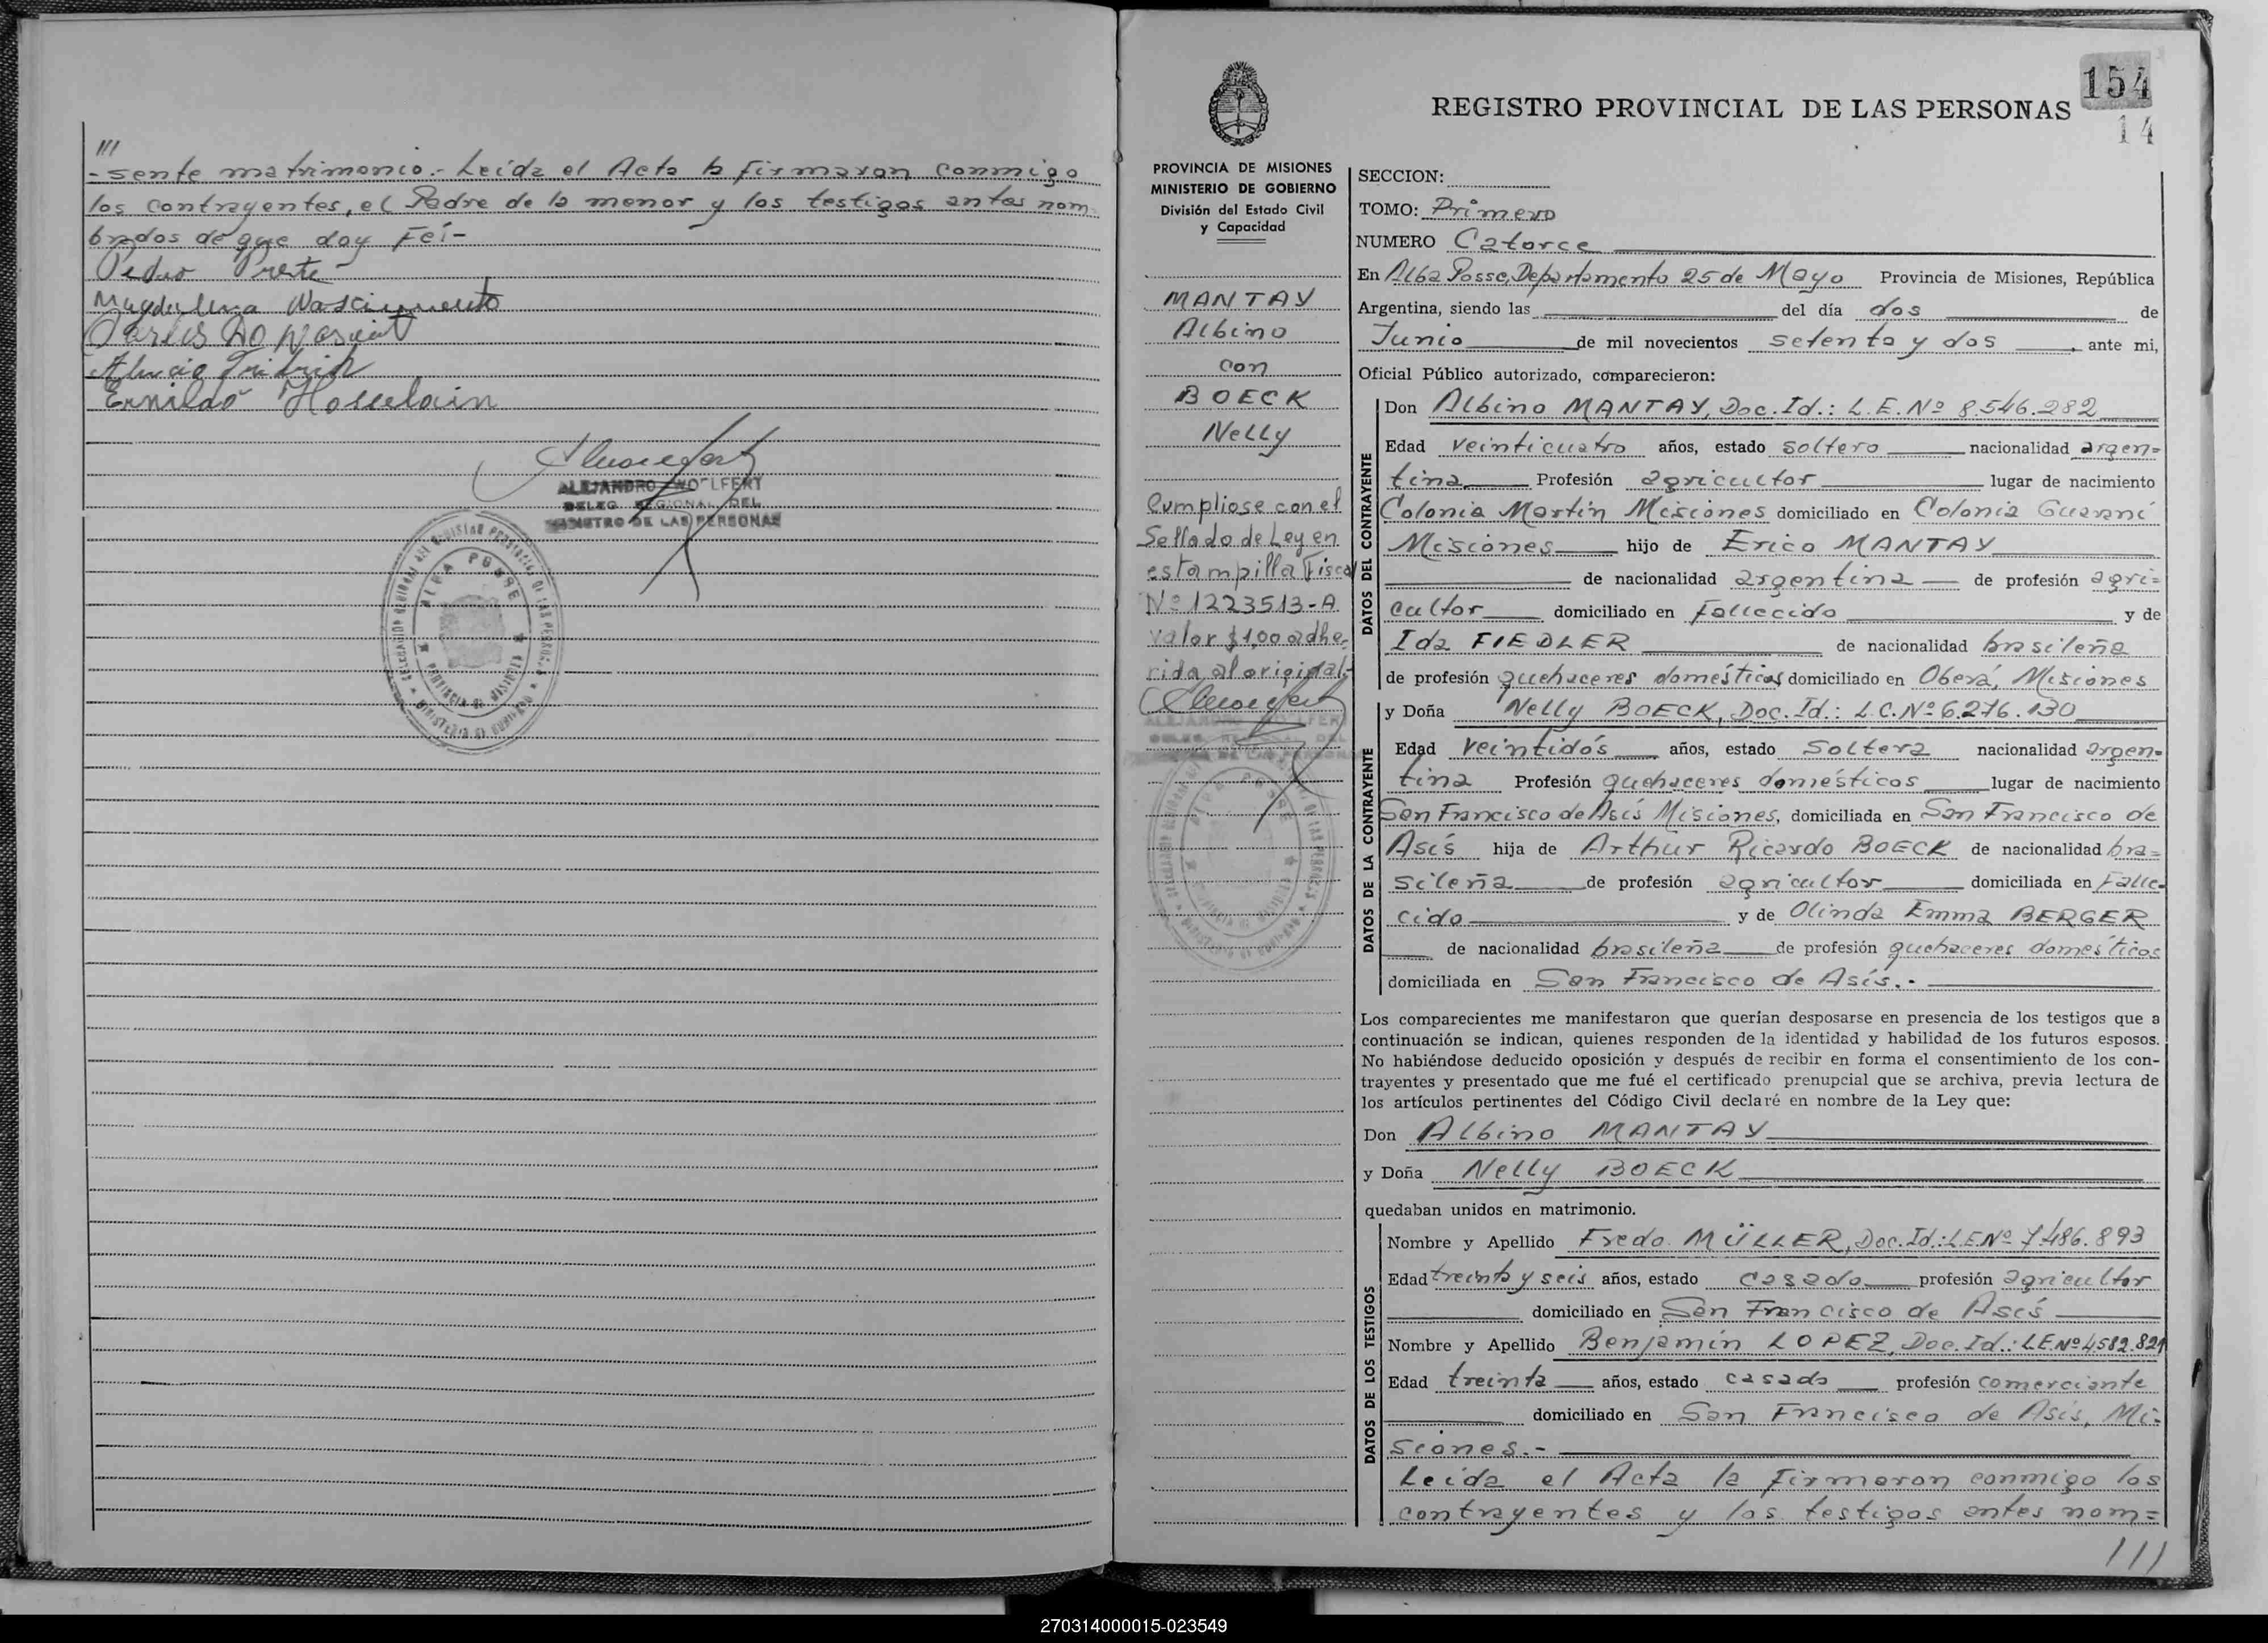 ///
-sente matrimonio.- Leída el Acta la firmaron conmigo
los contrayentes, el Padre de la menor y los testigos antes nom-
brados de que doy Fei-
Pedro Preste
Magdalena Nascimento
Carlos Do
Ernildo
ALEJANDRO WOLFERT
DELEG. REGIONAL DEL
REGISTRO DE LAS PERSONAS
ALBA POSSE
PROVINCIA DE MISIONES
154
14
REGISTRO PROVINCIAL DE LAS PERSONAS
PROVINCIA DE MISIONES
MINISTERIO DE GOBIERNO
División del Estado Civil
y Capacidad
MANTAY
Albino
con
BOECK
Nelly
Cumpliose con el
Sellado de Ley en
estampilla Fiscal
Nº 1223513-A
valor $1,00 adhe-
rida al original.-
SECCION:
TOMO: Primero
NUMERO Catorce
En Alba Posse, Departamento 25 de Mayo Provincia de Misiones, República
Argentina, siendo las del día dos de
Junio de mil novecientos setenta y dos, ante mi,
Oficial Público autorizado, comparecieron:
DATOS DEL CONTRAYENTE
Don Albino MANTAY, Doc. Id.: L.E. Nº 8.546.282
Edad veinticuatro años, estado soltero nacionalidad argen=
tina Profesión agricultor lugar de nacimiento
Colonia Martin Misiones domiciliado en Colonia Guaraní
Misiones hijo de Erico MANTAY
de nacionalidad argentina de profesión agri=
cultor domiciliado en Fallecido y de
Ida FIEDLER de nacionalidad brasileña
de profesión quehaceres domésticos domiciliado en Oberá, Misiones
DATOS DE LA CONTRAYENTE
y Doña Nelly BOECK, Doc. Id.: L.C. Nº 6.276.130
Edad veintidós años, estado soltera nacionalidad argen=
tina Profesión quehaceres domésticos lugar de nacimiento
San Francisco de Asís Misiones, domiciliada en San Francisco de
Asís hija de Arthur Ricardo BOECK de nacionalidad bra=
sileña de profesión agricultor domiciliada en Falle=
cido y de Olinda Emma BERGER
de nacionalidad brasileña de profesión quehaceres domésticos
domiciliada en San Francisco de Asís.-
Los comparecientes me manifestaron que querían desposarse en presencia de los testigos que a
continuación se indican, quienes responden de la identidad y habilidad de los futuros esposos.
No habiéndose deducido oposición y después de recibir en forma el consentimiento de los con-
trayentes y presentado que me fué el certificado prenupcial que se archiva, previa lectura de
los artículos pertinentes del Código Civil declaré en nombre de la Ley que:
Don Albino MANTAY
y Doña Nelly BOECK
quedaban unidos en matrimonio.
DATOS DE LOS TESTIGOS
Nombre y Apellido Fredo MÜLLER, Doc. Id.: L.E Nº 7.486.893
Edad treinta y seis años, estado casado profesión agricultor
domiciliado en San Francisco de Asís
Nombre y Apellido Benjamín LOPEZ, Doc. Id.: L.E. Nº 4582.821
Edad treinta años, estado casado profesión comerciante
domiciliado en San Francisco de Asís, Mi-
siones.-
Leída el Acta la firmaron conmigo los
contrayentes y los testigos antes nom=
///
270314000015-023549